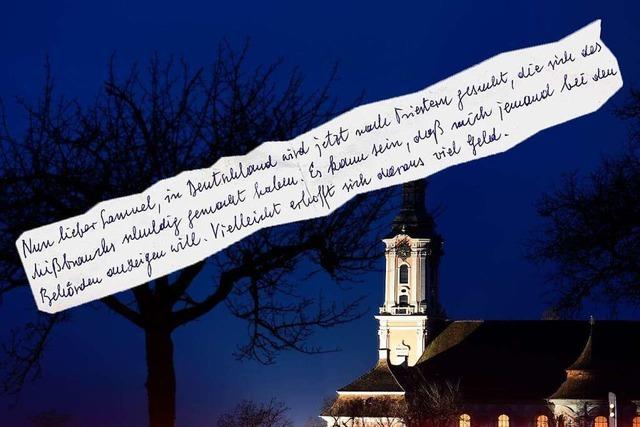 Nun lieber Samuel, in Deutschland wird jetzt nach Priestern gesucht, die sich des
Mißbrauchs schuldig gemacht haben. Es kann sein, daß mich jemand bei den
Behörden anzeigen will. Vielleicht erhofft sich daraus viel Geld.